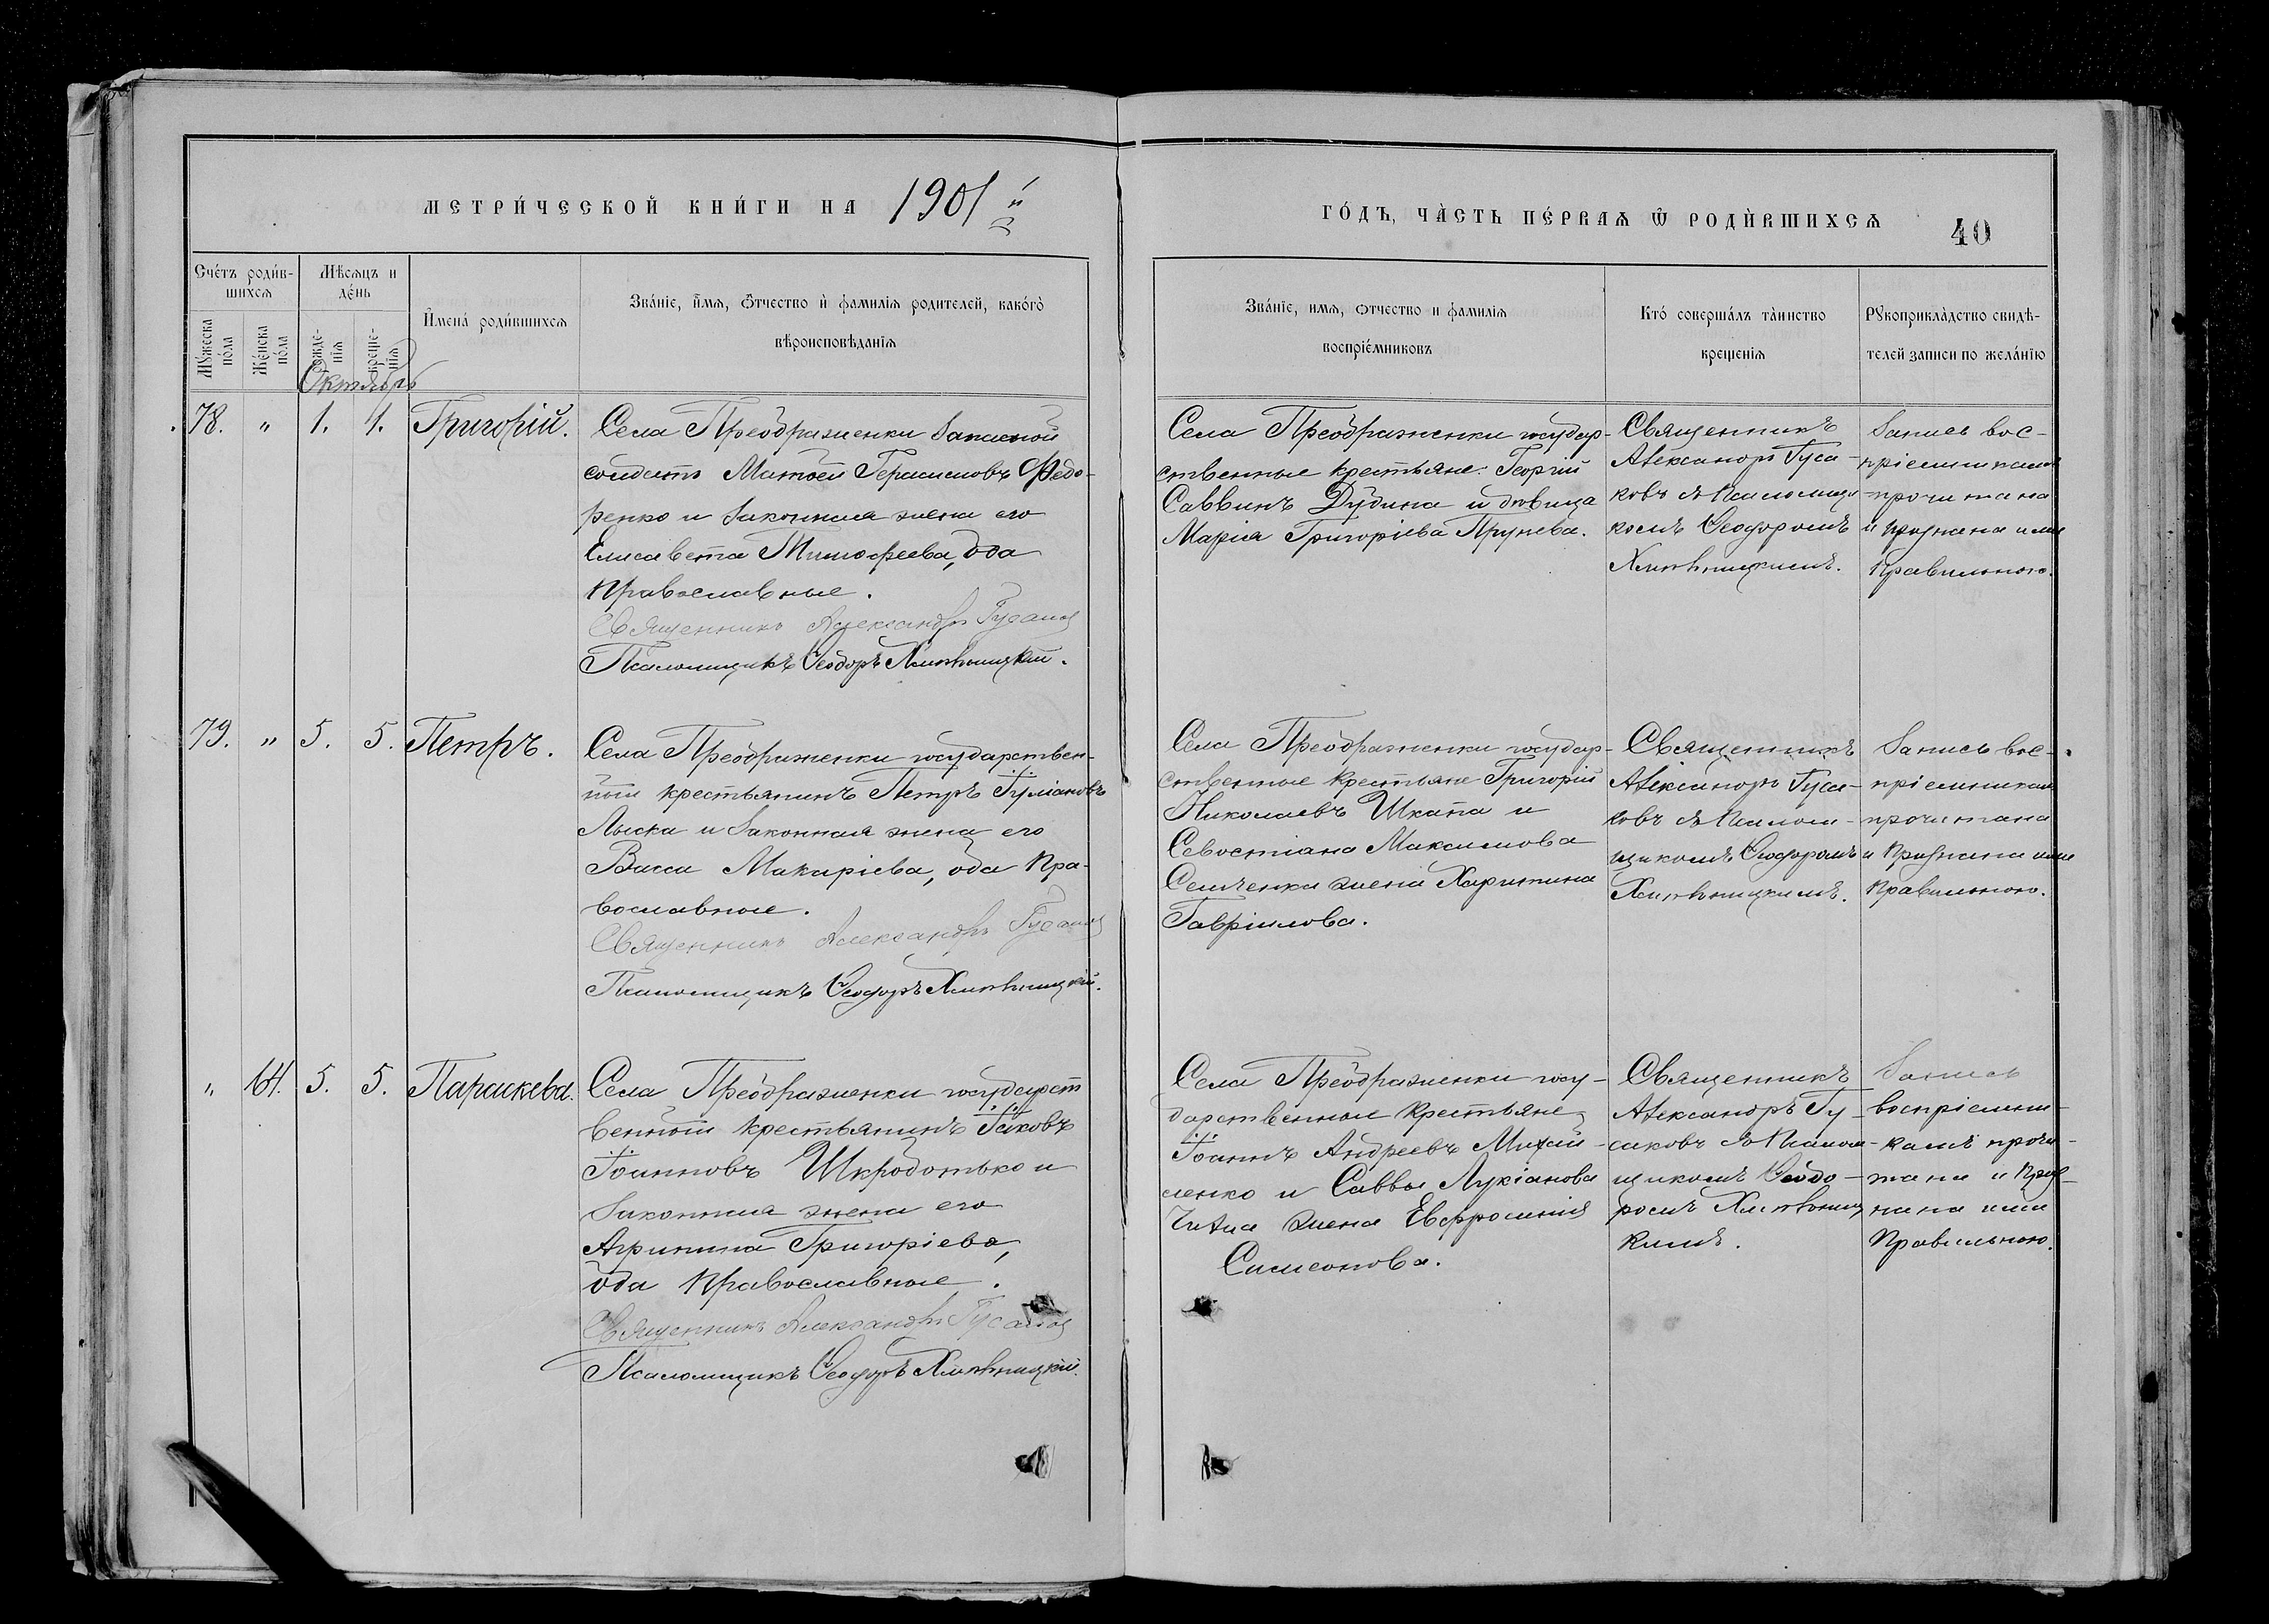 МЕТРИ́ЧЕСКОЙ КНИ́ГИ НА 1901 й
ГО́ДЪ, ЧА̀СТЬ ПЕ́РВАѦ Ѿ РОДЍВШИХСѦ
40
Сче́тъ роди́в-
шихсѧ
Мѣсѧцъ и
де́нь
Мꙋ́жеска
по́ла
Же́нска
по́ла
рожде-
нїѧ
креще-
нїѧ
Октябрь
И҆мена̀ роди́вшихсѧ
Зва́нїе, и҆́мѧ, ѻ҆́тчество и҆ фамилїѧ родителей, како́гѡ
вѣроисповѣданїѧ
Зва́нїе, имѧ, ѻтчество и фамилїѧ
воспрїе́мниковъ
Кто́ соверша́лъ та̀инство
креще́нїѧ
Рꙋкоприкла̀дство свидѣ-
телей записи по жела́нїю
78. " 1. 1. Григорій.
Села Преображенки запасной
солдатъ Матѳей Герасимовъ Федо-
ренко и законная жена его
Елисавета Тимофеева, оба
православные.
Священникъ Александръ Гусаковъ
Псаломщикъ Ѳеодоръ Хмѣльницкій.
Села Преображенки государ-
ственные крестьяне: Георгій
Саввинъ Дудина и дѣвица
Марія Григоріева Прунева.
Священникъ
Александръ Гуса-
ковъ съ Псаломщи
комъ Ѳеодоромъ
Хмѣльницкимъ.
Запись вос-
пріемникамъ
прочитана
и признана ими
правильною.
79. " 5. 5. Петръ.
Села Преображенки государствен-
ный крестьянинъ Петръ Іуліановъ
Лыска и законная жена его
Васса Макаріева, оба пра-
вославные.
Священникъ Александръ Гусаковъ
Псаломщикъ Ѳеодоръ Хмѣльницкій.
Села Преображенки государ-
ственные крестьяне Григорій
Николаевъ Шкапа и
Севостіана Максимова
Семченка жена Харитина
Гавріилова.
Священникъ
Александръ Гуса-
ковъ съ Псалом-
щикомъ Ѳеодоромъ
Хмѣльницкимъ.
Запись вос-
пріемникамъ
прочитана
и признана ими
правильною.
" 64. 5. 5. Параскева.
Села Преображенки государст
венный крестьянинъ Іаковъ
Іоанновъ Шкроботько и
законная жена его
Агрипина Григоріева,
оба православные.
Священникъ Александръ Гусаковъ
Псаломщикъ Ѳеодоръ Хмѣльницкій.
Села Преображенки госу-
дарственные крестьяне
Іоаннъ Андреевъ Михай-
ленко и Саввы Лукіанова
жена Евфросинія
Симеонова.
Священникъ
Александръ Гу-
саковъ съ Псалом-
щикомъ Ѳеодо-
ромъ Хмѣльниц
кимъ.
Запись
воспріемни-
камъ прочи-
тана и приз-
нана ими
правильною.